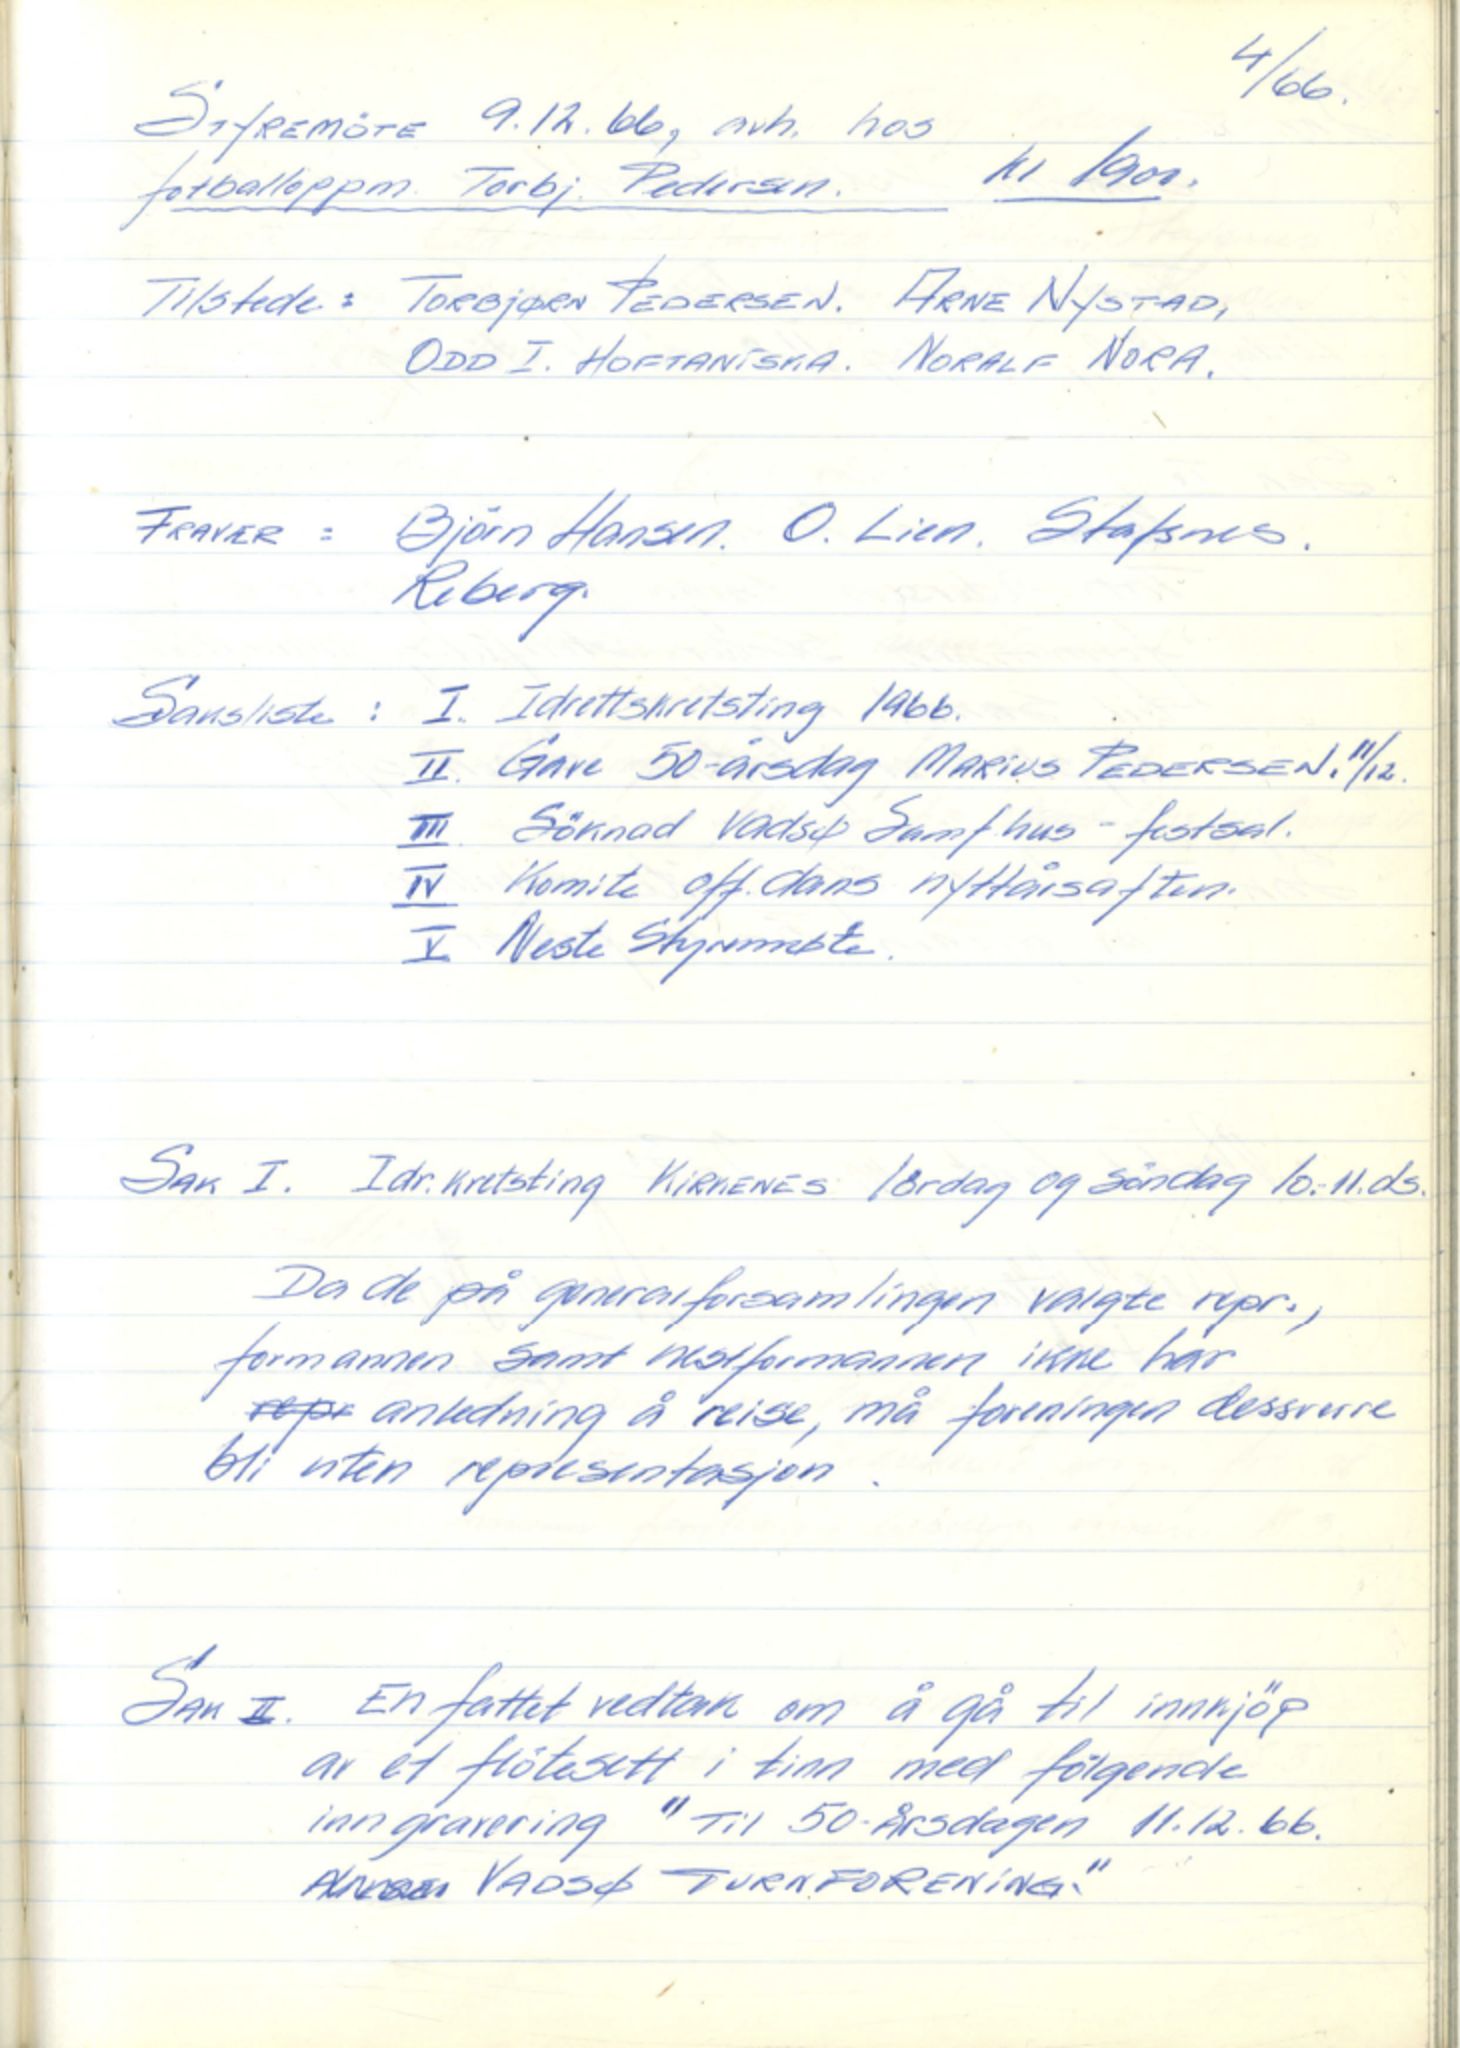 4/66.
STYREMÖTE 9.12.66, avh. hos
fotballoppm. Torbj. Pedersen. kl 1900.
Tilstede: TORBJØRN PEDERSEN. ARNE NYSTAD,
ODD I. HOFTANISKA. NORALF NORA.
FRAVÆR: Björn Hansen. O. Lien. Stafsnes.
Reberg.
Saksliste: I. Idrettskretsting 1966.
II. Gave 50-årsdag MARIUS PEDERSEN. 11/12.
III Söknad Vadsø Samf.hus - festsal.
IV Komite off. dans nyttårsaften.
V Neste Styremøte.
SAK I. Idr.kretsting KIRKENES lördag og söndag 10.-11. ds.
Da de på generalforsamlingen valgte repr.,
formannen samt nestformannen ikke har
repr anledning å reise, må foreningen dessverre
bli uten representasjon.
SAK II. En fattet vedtak om å gå til innkjöp
av et flötesett i tinn med fölgende
inngravering "Til 50-Årsdagen 11.12.66.
VADSØ TURNFORENING."